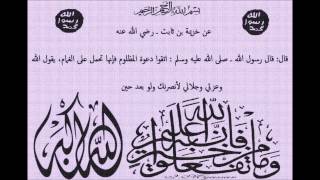 بسم الله الرحمن الرحيم
الله
رسول
محمد
الله
رسول
محمد
عن خزيمة بن ثابت ـ رضي الله عنه
قال: قال رسول الله ـ صلى الله عليه وسلم : اتقوا دعوة المظلوم فإنها تحمل على الغمام، يقول الله
وعزتي وجلالي لأنصرنك ولو بعد حين
وما تفعلوا من خير فإن الله به عليم
الله أكبر